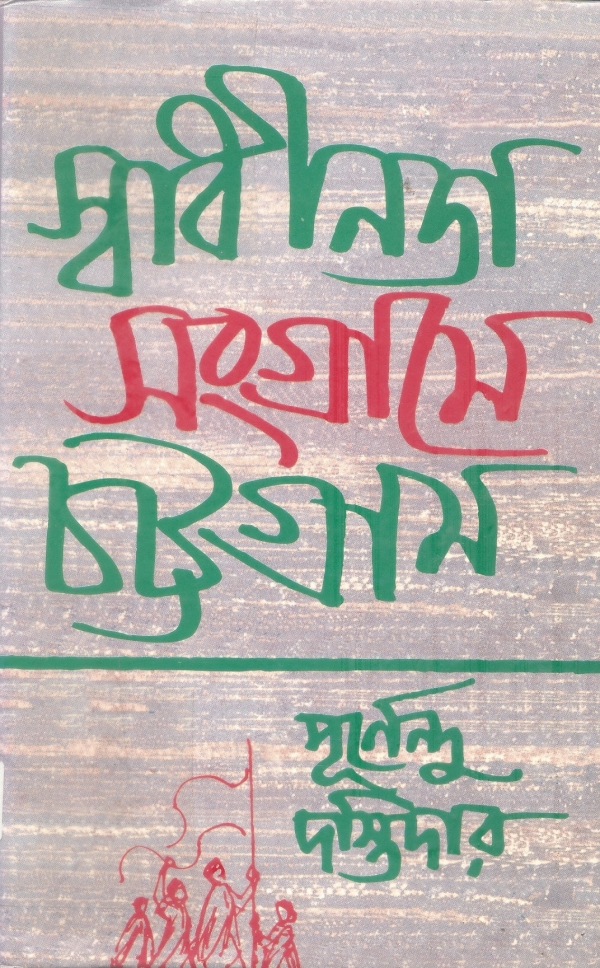 স্বাধীনতা
সংগ্রামে
চট্টগ্রাম
পূর্ণেন্দু
দস্তিদার